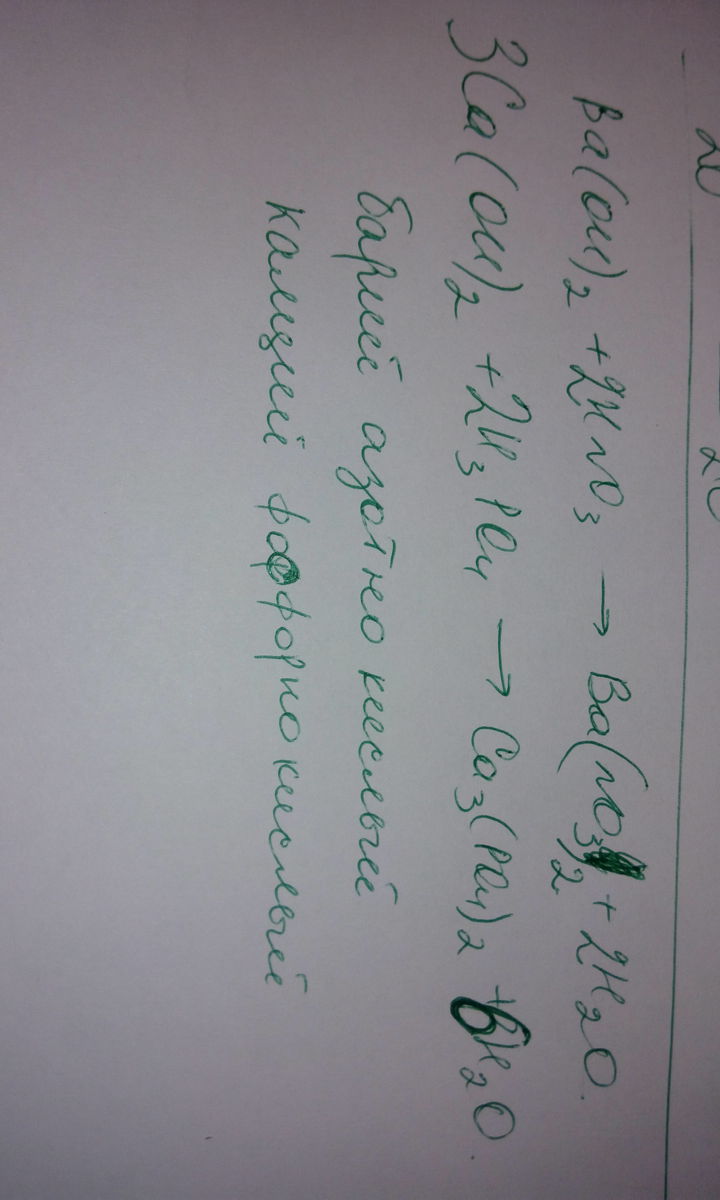 Ba(OH)₂ + 2HNO₃ → Ba(NO₃)₂ + 2H₂O.
3Ca(OH)₂ + 2H₃PO₄ → Ca₃(PO₄)₂ + 6H₂O.
барий азотнокислый
кальций фосфорнокислый